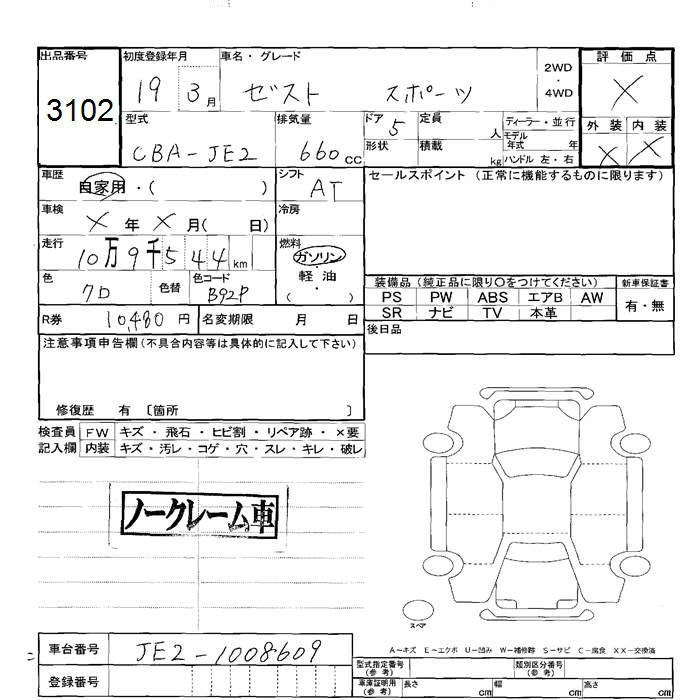 出品番号 初度登録年月 車名・グレード 2WD ・ 4WD 評価点
3102 19 3月 ゼスト スポーツ ✕
型式 排気量 ドア 定員 人 ディーラー・並行 外装 内装
CBA-JE2 660cc 5 形状 積載 kg モデル年式 年 ハンドル 左・右 ✕ ✕
車歴 自家用・( ) シフト AT セールスポイント(正常に機能するものに限ります)
車検 ✕年 ✕月( 日) 冷房
走行 10万9千544km 燃料 ガソリン・軽油 ( )
色 色替 色コード B92P
装備品(純正品に限り○をつけてください) 新車保証書
PS PW ABS エアB AW 有・無
SR ナビ TV 本革
R券 10,480円 名変期限 月 日 後日品
注意事項申告欄(不具合内容等は具体的に記入して下さい)
修復歴 有 〔箇所 〕
検査員 FW キズ・飛石・ヒビ割・リペア跡・×要
記入欄 内装 キズ・汚レ・コゲ・穴・スレ・キレ・破レ
ノークレーム車
スペア
A-キズ E-エクボ U-凹み W-補修跡 S-サビ C-腐食 XX-交換済
車台番号 JE2-1008609
型式指定番号(参考) 類別区分番号(参考)
登録番号
車庫証明用(参考) 長さ cm 幅 cm 高さ cm